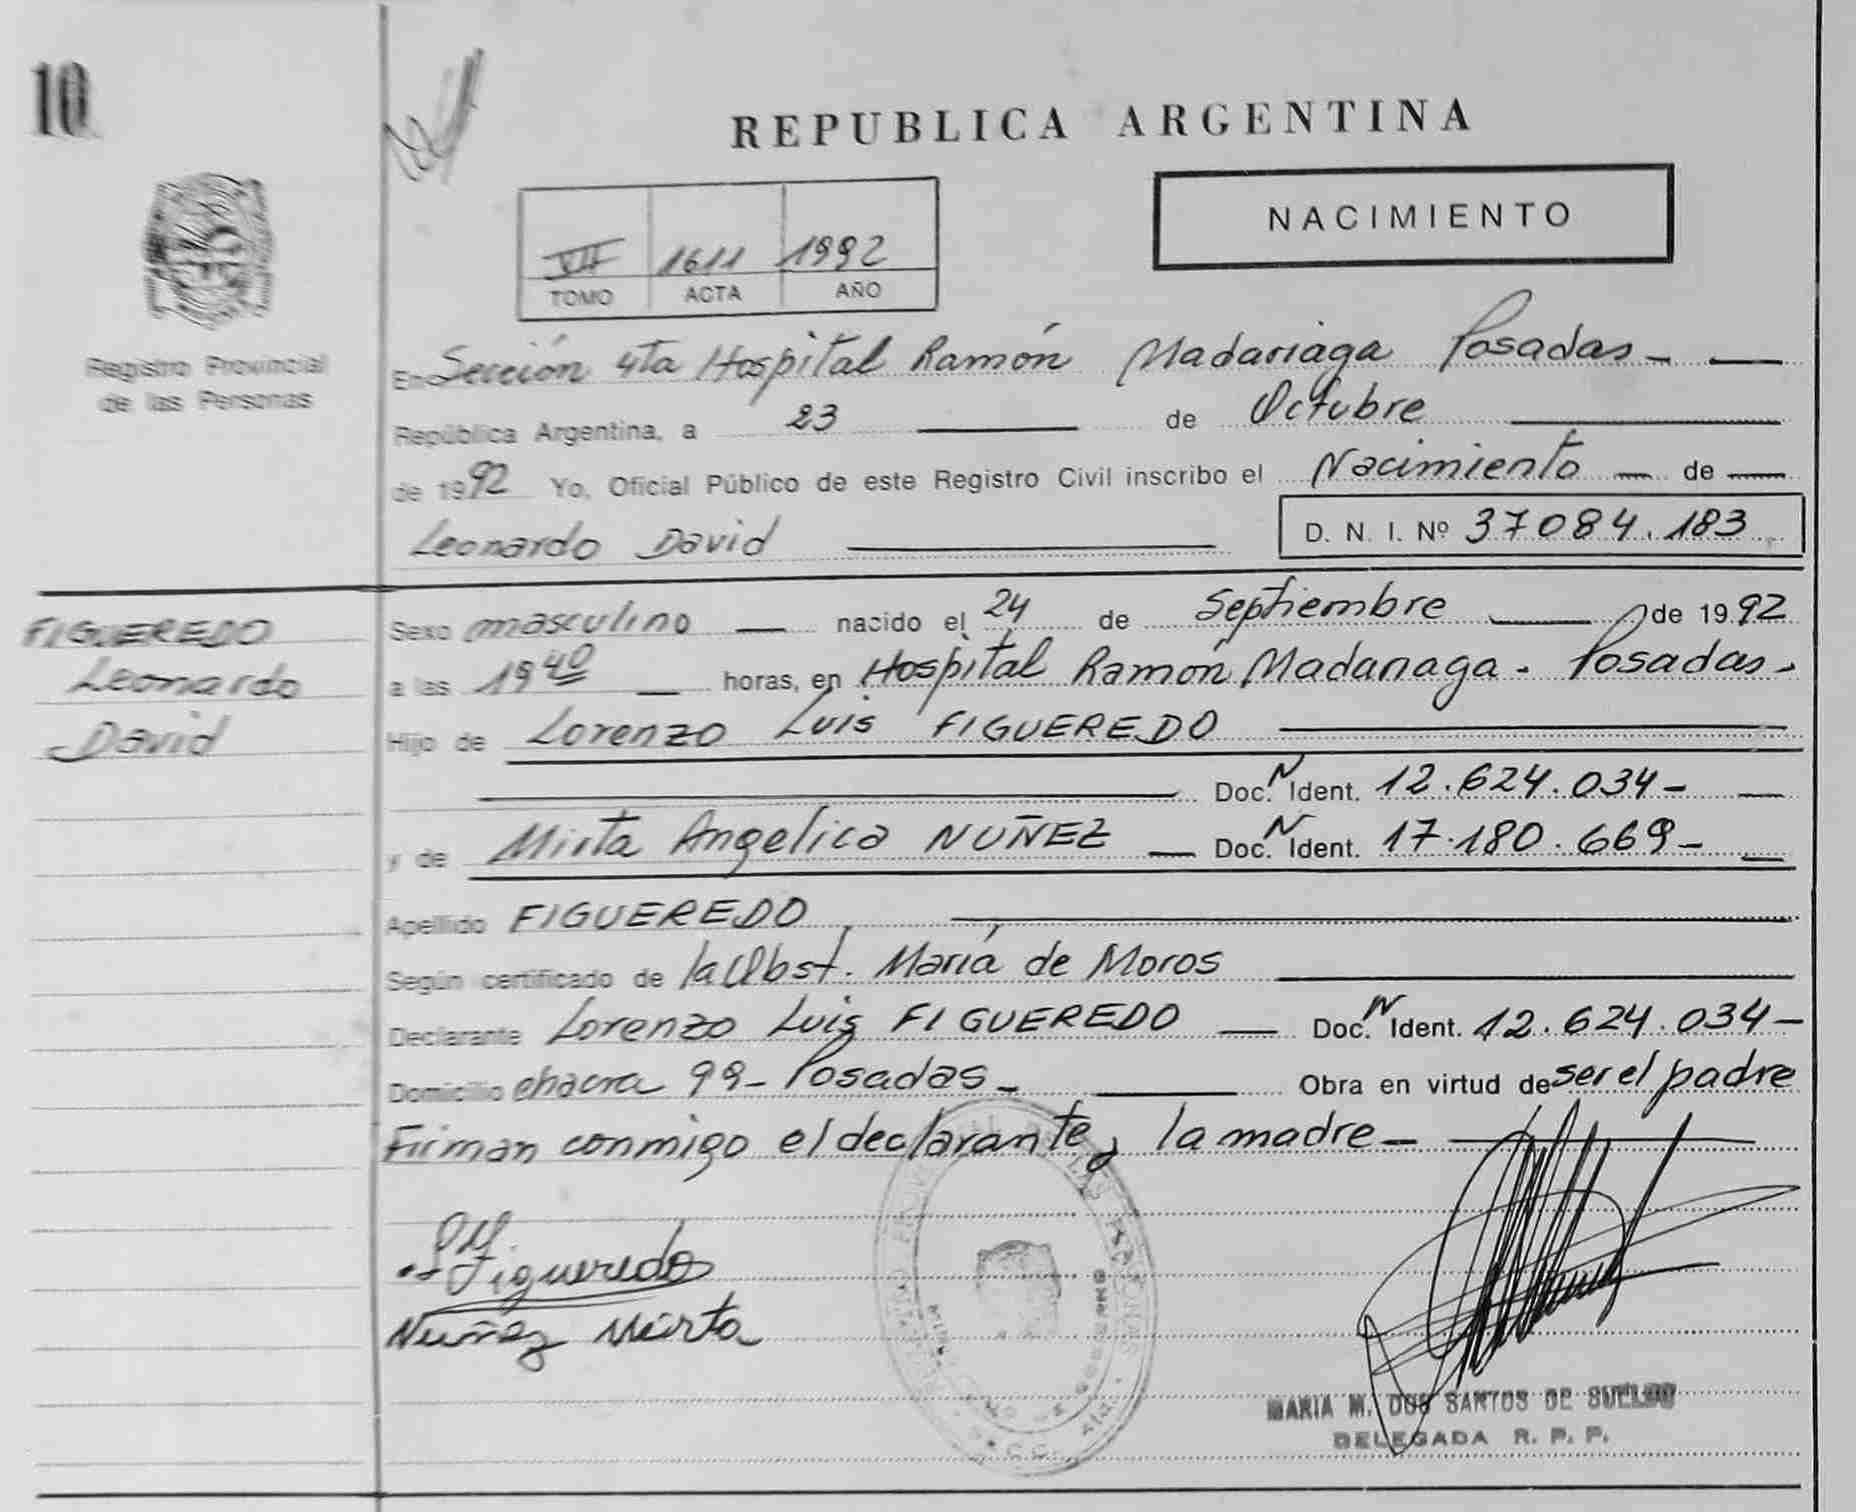 10
REPUBLICA ARGENTINA
NACIMIENTO
VII 1611 1992
TOMO ACTA AÑO
Registro Provincial
de las Personas
En Sección 4ta Hospital Ramón Madariaga Posadas
República Argentina, a 23 de Octubre
de 1992 Yo, Oficial Público de este Registro Civil inscribo el Nacimiento de
Leonardo David D. N. I. Nº 37084.183
FIGUEREDO
Leonardo
David
Sexo masculino nacido el 24 de Septiembre de 1992
a las 19 40 horas, en Hospital Ramón Madariaga - Posadas.
Hijo de Lorenzo Luis FIGUEREDO
Doc. N Ident. 12.624.034-
y de Mirta Angélica NUÑEZ Doc. N Ident. 17.180.669-
Apellido FIGUEREDO
Según certificado de la Obst. María de Moros
Declarante Lorenzo Luis FIGUEREDO Doc. N Ident. 12.624.034-
Domicilio chacra 99- Posadas- Obra en virtud de ser el padre
Firman conmigo el declarante, la madre-
Figueredo
Nuñez Mirta
MARIA M. DOS SANTOS DE SUELDO
DELEGADA R. P. P.